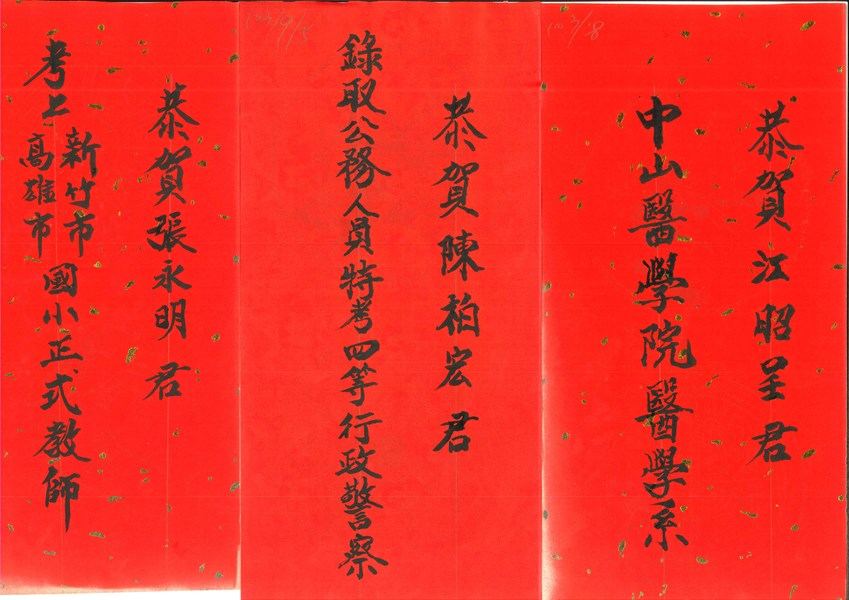 恭賀江昭呈君
中山醫學院醫學系
恭賀陳柏宏君
錄取公務人員特考四等行政警察
恭賀張永明君
考上新竹市
高雄市
國小正式教師